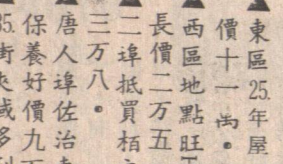 ▲東區25.年屋
價十一萬。
▲西區地點旺
長價二万五
▲二埠抵買栢
三万八。
▲唐人埠佐治
保養好價九万
35.街夾或多利